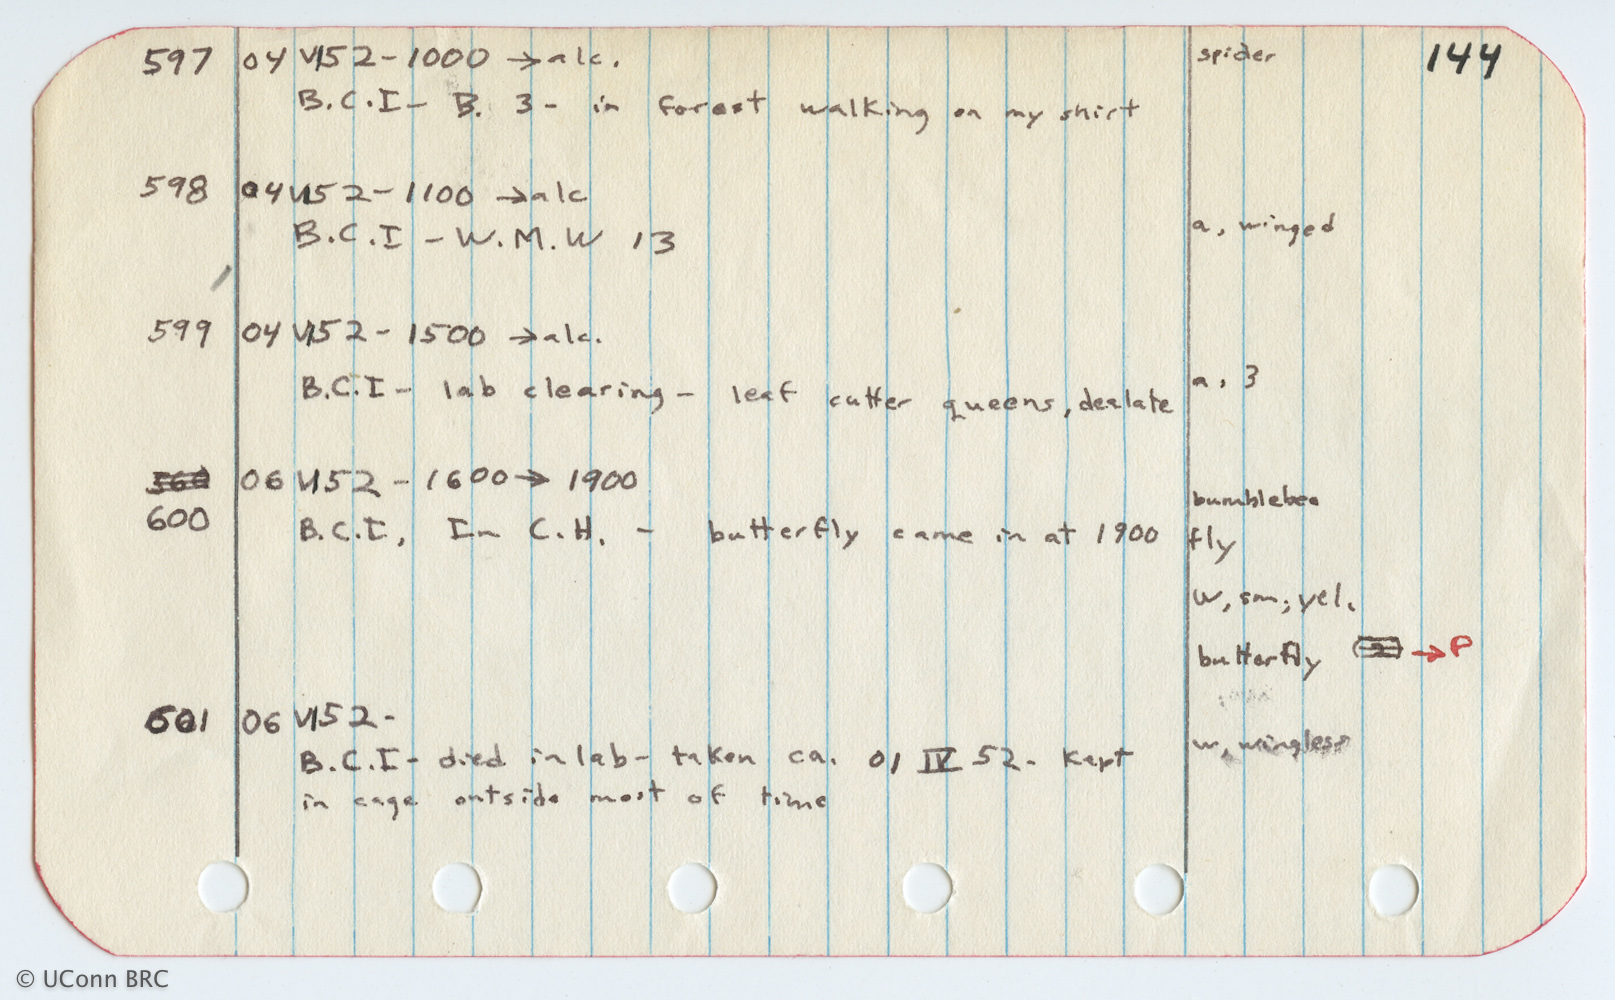 144
597 04 VI 52 - 1000 → alc. spider
B.C.I - B. 3 - in forest walking on my shirt
598 04 VI 52 - 1100 → alc
B.C.I - W.M.W 13 a, winged
599 04 VI 52 - 1500 → alc.
B.C.I - lab clearing - leaf cutter queens, dealate a, 3
560 06 VI 52 - 1600 → 1900
600 bumblebee
B.C.I, In C.H. - butterfly came in at 1900 fly
w, sm; yel.
butterfly → P
601 06 VI 52 -
B.C.I - died in lab - taken ca. 01 IV 52. Kept w, wingless
in cage outside most of time
© UConn BRC